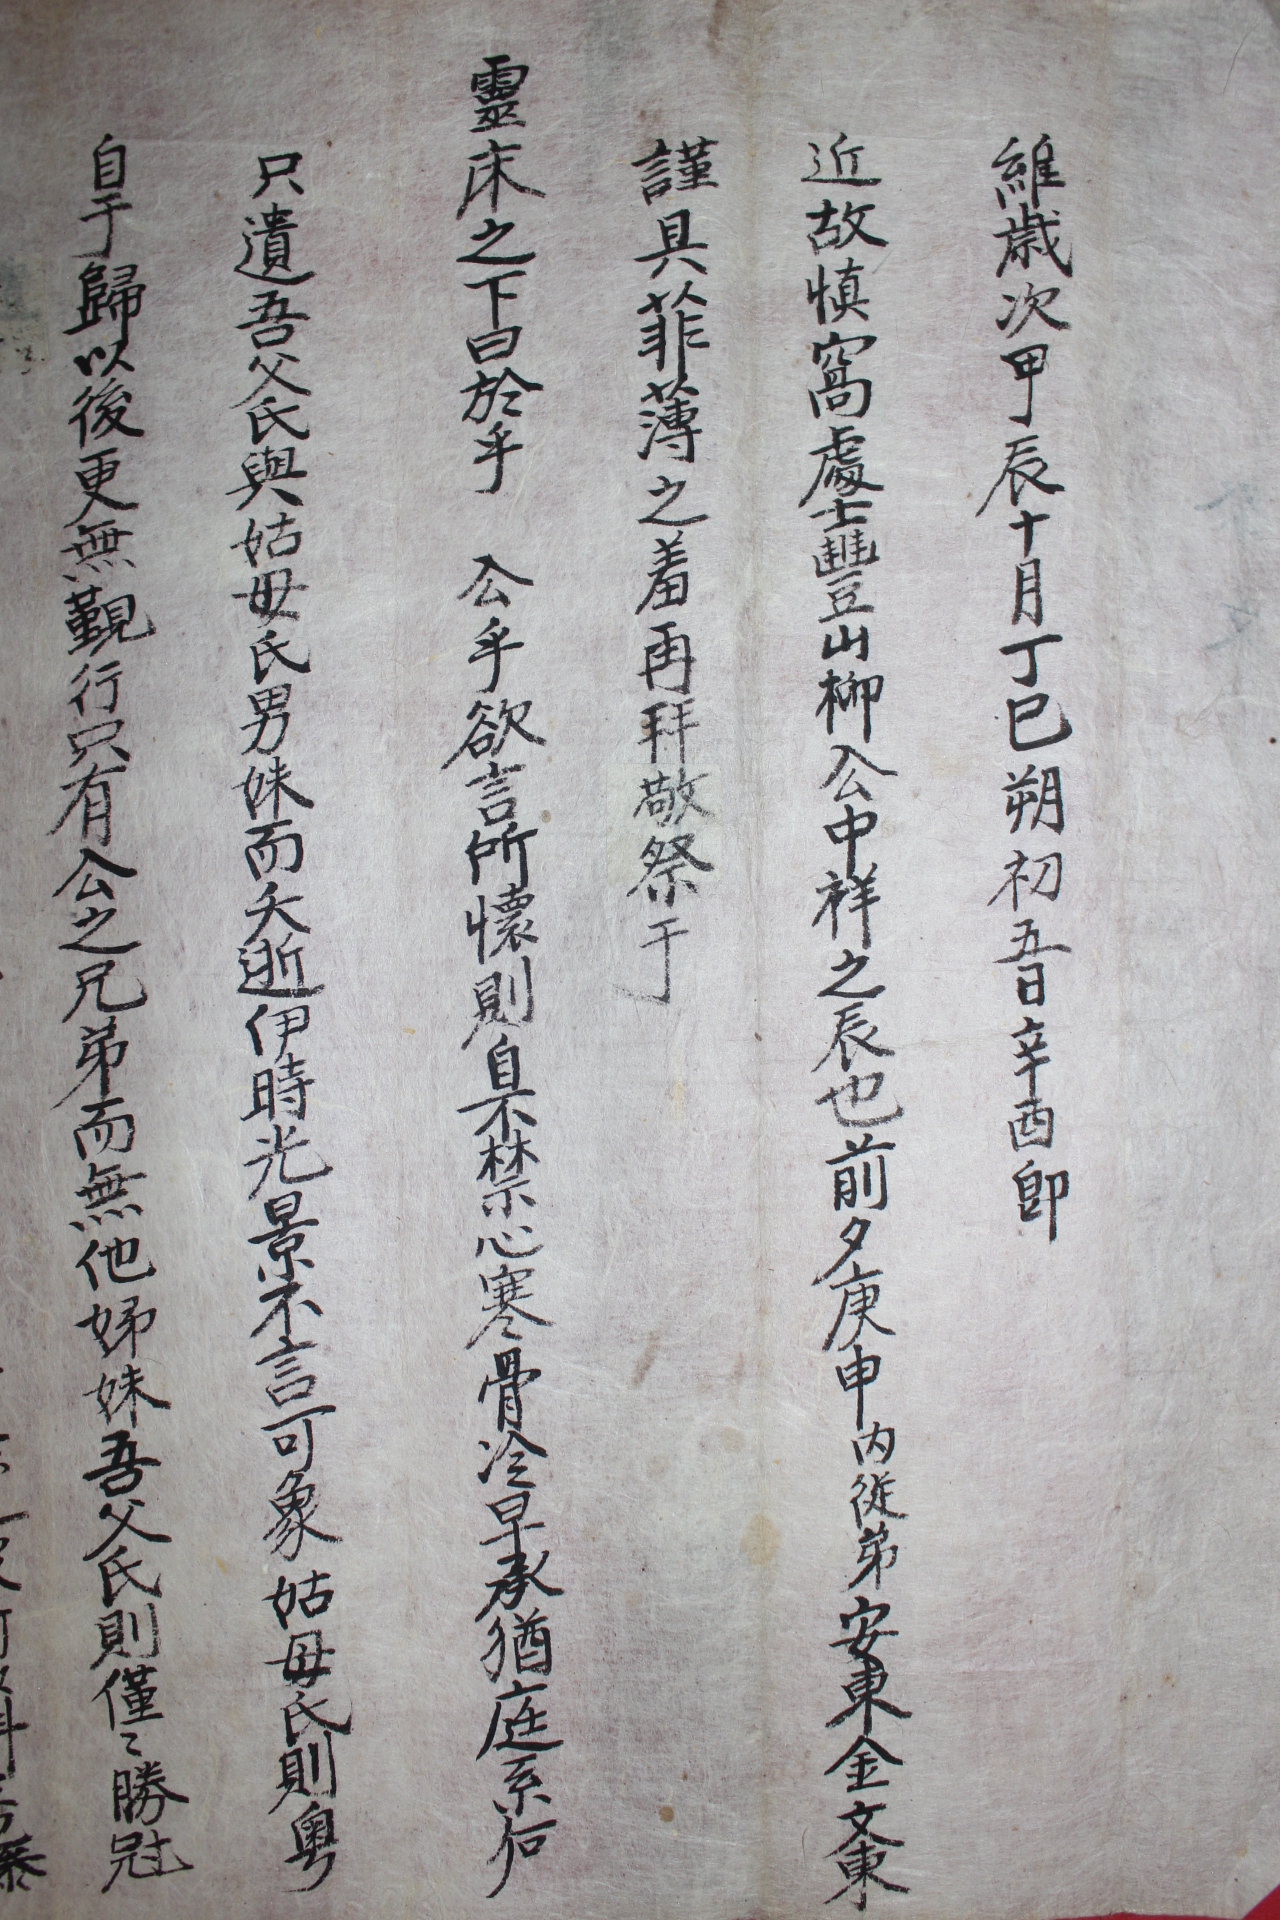 維歲次甲辰十月丁巳朔初五日辛酉卽
近故愼窩處士豐山柳公中祥之辰也前夕庚申內從弟安東金文東
謹具菲薄之羞再拜敬祭于
靈床之下曰於乎 公乎欲言所懷則自不禁心寒骨冷早承猶庭系何
只遺吾父氏與姑母氏男妹而夭逝伊時光景不言可象姑母氏則粤
自于歸以後更無覲行只有公之兄弟而無他娣妹吾父氏則僅〻勝冠